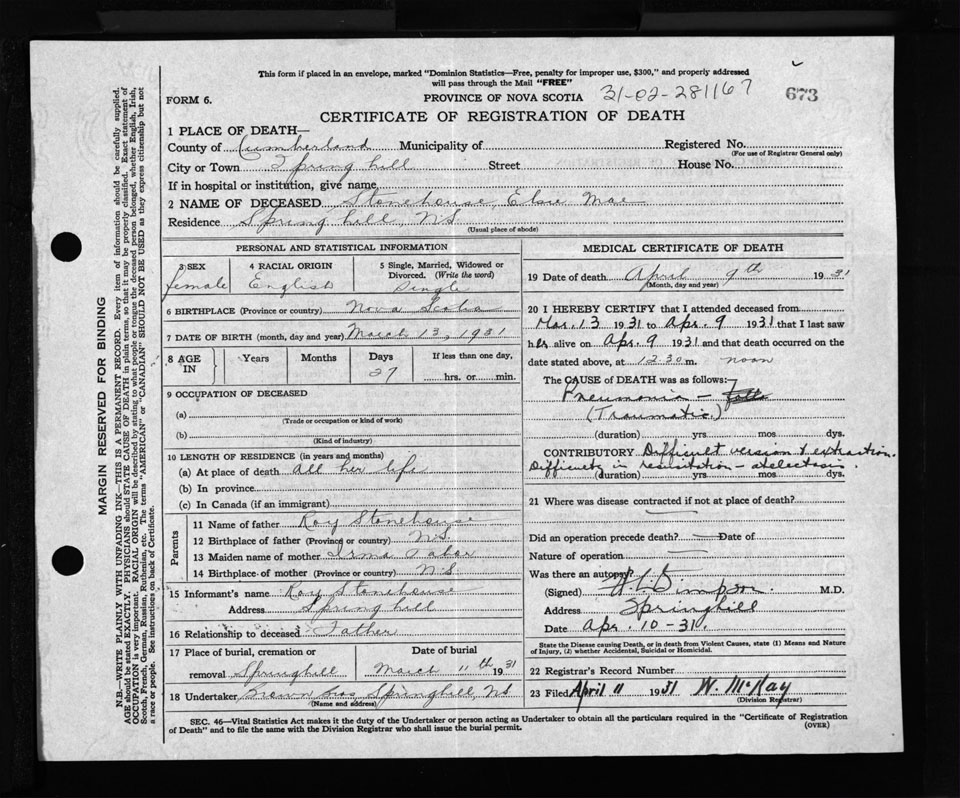 This form if placed in an envelope, marked "Dominion Statistics—Free, penalty for improper use, $300," and properly addressed
will pass through the Mail "FREE"
FORM 6.
PROVINCE OF NOVA SCOTIA
31-02-281167
673
CERTIFICATE OF REGISTRATION OF DEATH
1 PLACE OF DEATH—
County of Cumberland Municipality of Registered No.
(For use of Registrar General only)
City or Town Springhill Street House No.
If in hospital or institution, give name
2 NAME OF DECEASED Stonehouse, Elsie Mae
Residence Springhill, N.S.
(Usual place of abode)
PERSONAL AND STATISTICAL INFORMATION
3 SEX 4 RACIAL ORIGIN 5 Single, Married, Widowed or
Divorced. (Write the word)
female English Single
6 BIRTHPLACE (Province or country) Nova Scotia
7 DATE OF BIRTH (month, day and year) March 13, 1931
8 AGE IN Years Months Days If less than one day,
27 hrs. or min.
9 OCCUPATION OF DECEASED
(a)
(Trade or occupation or kind of work)
(b)
(Kind of industry)
10 LENGTH OF RESIDENCE (in years and months)
(a) At place of death All her life
(b) In province
(c) In Canada (if an immigrant)
Parents
11 Name of father Roy Stonehouse
12 Birthplace of father (Province or country) N.S.
13 Maiden name of mother Irma Tabor
14 Birthplace of mother (Province or country) N.S
15 Informant's name Roy Stonehouse
Address Springhill
16 Relationship to deceased Father
17 Place of burial, cremation or Date of burial
removal Springhill March 11th 1931
18 Undertaker Brown Bros Springhill, NS
(Name and address)
MEDICAL CERTIFICATE OF DEATH
19 Date of death April 9th 1931
(Month, day and year)
20 I HEREBY CERTIFY that I attended deceased from
Mar. 13 1931 to Apr. 9 1931 that I last saw
her alive on Apr. 9 1931 and that death occurred on the
date stated above, at 12.30 m. noon
The CAUSE of DEATH was as follows:
Pneumonia —
(Traumatic)
(duration) yrs mos dys.
CONTRIBUTORY Difficult version & extraction.
Difficulty in resuscitation — atelectasis.
(duration) yrs. mos. dys.
21 Where was disease contracted if not at place of death?
Did an operation precede death? Date of
Nature of operation
Was there an autopsy?
(Signed) Simpson. M.D.
Address Springhill
Date Apr. 10-31.
State the Disease causing Death, or in death from Violent Causes, state (1) Means and Nature
of Injury, (2) whether Accidental, Suicidal or Homicidal.
22 Registrar's Record Number
23 Filed April 11 1931 W. McKay
(Division Registrar)
SEC. 46—Vital Statistics Act makes it the duty of the Undertaker or person acting as Undertaker to obtain all the particulars required in the "Certificate of Registration
of Death" and to file the same with the Division Registrar who shall issue the burial permit.
(OVER)
MARGIN RESERVED FOR BINDING
N.B.—WRITE PLAINLY WITH UNFADING INK—THIS IS A PERMANENT RECORD. Every item of information should be carefully supplied.
AGE should be stated EXACTLY. PHYSICIANS should STATE CAUSE OF DEATH in plain terms, so that it may be properly classified. Exact statement of
OCCUPATION is very important. RACIAL ORIGIN will be described by stating to what people or tongue the deceased person belonged, whether English, Irish,
Scotch, French, German, Russian, Ruthenian, etc. The terms "AMERICAN" or "CANADIAN" SHOULD NOT BE USED as they express citizenship but not
a race or people. See instructions on back of Certificate.